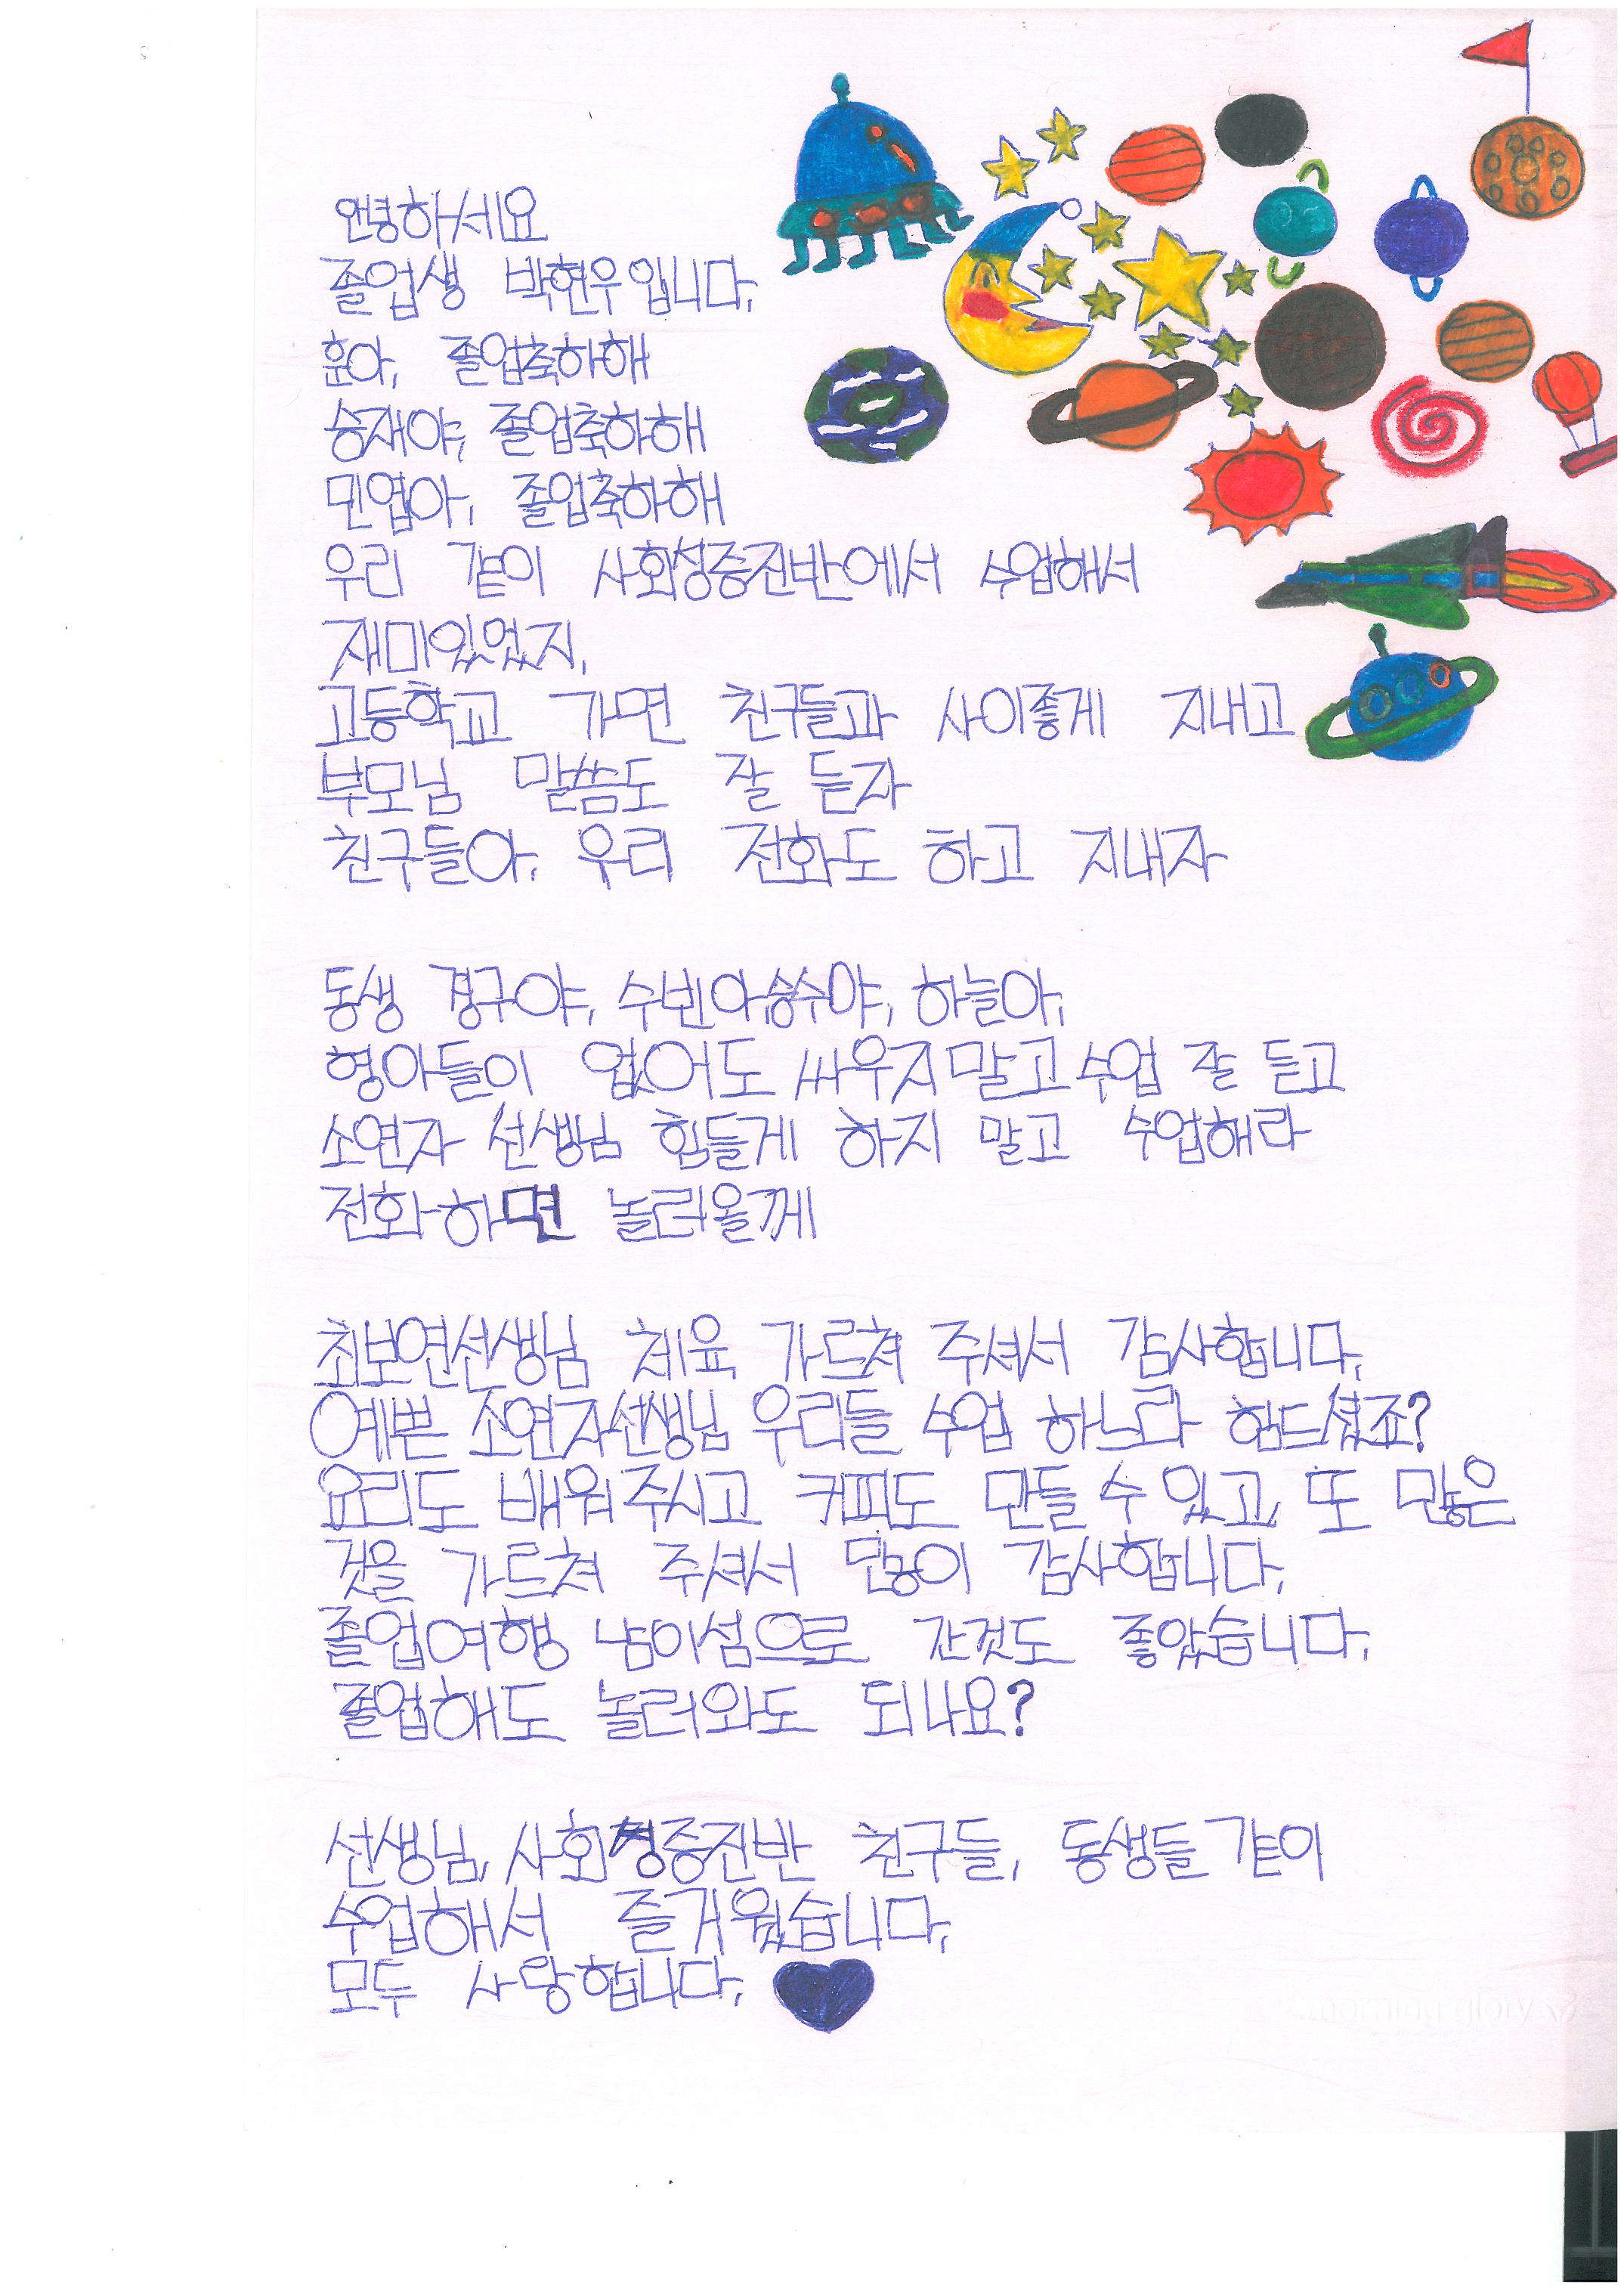 안녕하세요
졸업생 박현우입니다.
훈아, 졸업축하해
승재야, 졸업축하해
민엽아, 졸업축하해
우리 같이 사회성증진반에서 수업해서
재미있었지.
고등학교 가면 친구들과 사이좋게 지내고
부모님 말씀도 잘 듣자
친구들아, 우리 전화도 하고 지내자
동생 경구야, 수빈아, 승수야, 하늘아,
형아들이 없어도 싸우지말고 수업 잘 듣고
소연자 선생님 힘들게 하지 말고 수업해라
전화하면 놀러올께
최보연선생님 체육 가르쳐 주셔서 감사합니다.
예쁜 소연자선생님 우리들 수업 하느라 힘드셨죠?
요리도 배워주시고 커피도 만들 수 있고, 또 많은
것을 가르쳐 주셔서 많이 감사합니다.
졸업여행 남이섬으로 간것도 좋았습니다.
졸업해도 놀러와도 되나요?
선생님, 사회성증진반 친구들, 동생들 같이
수업해서 즐거웠습니다.
모두 사랑합니다.
morning glory